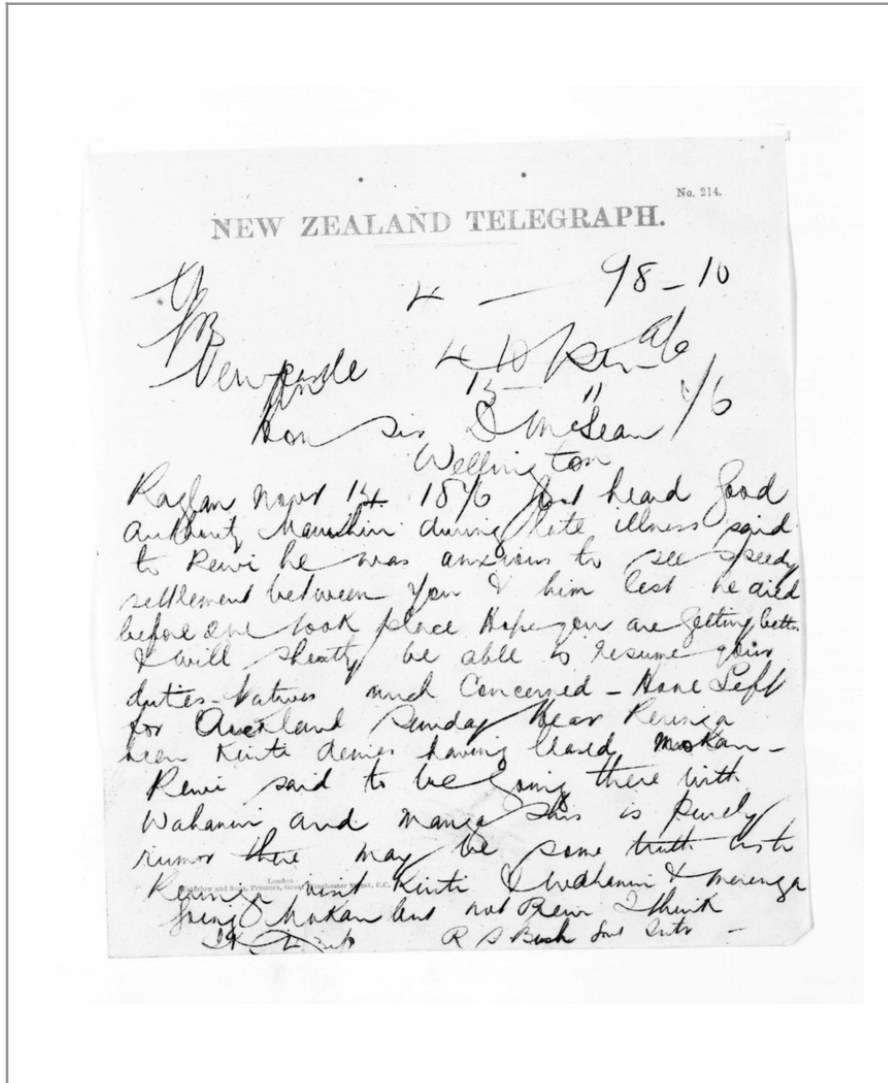 No. 214.
NEW ZEALAND TELEGRAPH.
4 — 98-10
4 10
15 "
Hon Sir D McLean
Wellington
Raglan Novr 14 1876 Just heard good
authority Manuhiri during late illness said
to Rewi he was anxious to see speedy
settlement between you & him lest he died
before one took place Hope you are getting better
& will shortly be able to resume your
duties - Natives much Concerned - Hone Left
for Auckland Sunday Hear Rerenga
been Kuiti denies having leased Mokau -
Rewi said to be going there with
Wahanui and Manga this is purely
rumor there may be some truth as to
London:
Printers,
Rerenga visit Kuiti & Wahanui & Merenga
going Mokau but not Rewi I think
R S Bush Govt Intr -